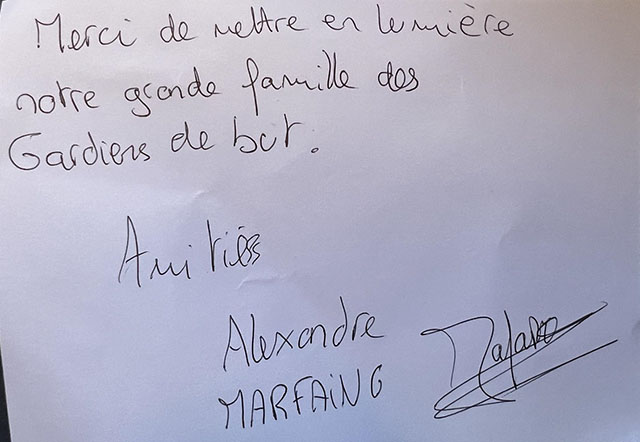 Merci de mettre en lumière
notre grande famille des
Gardiens de but.
Amitiés
Alexandre
MARFAING